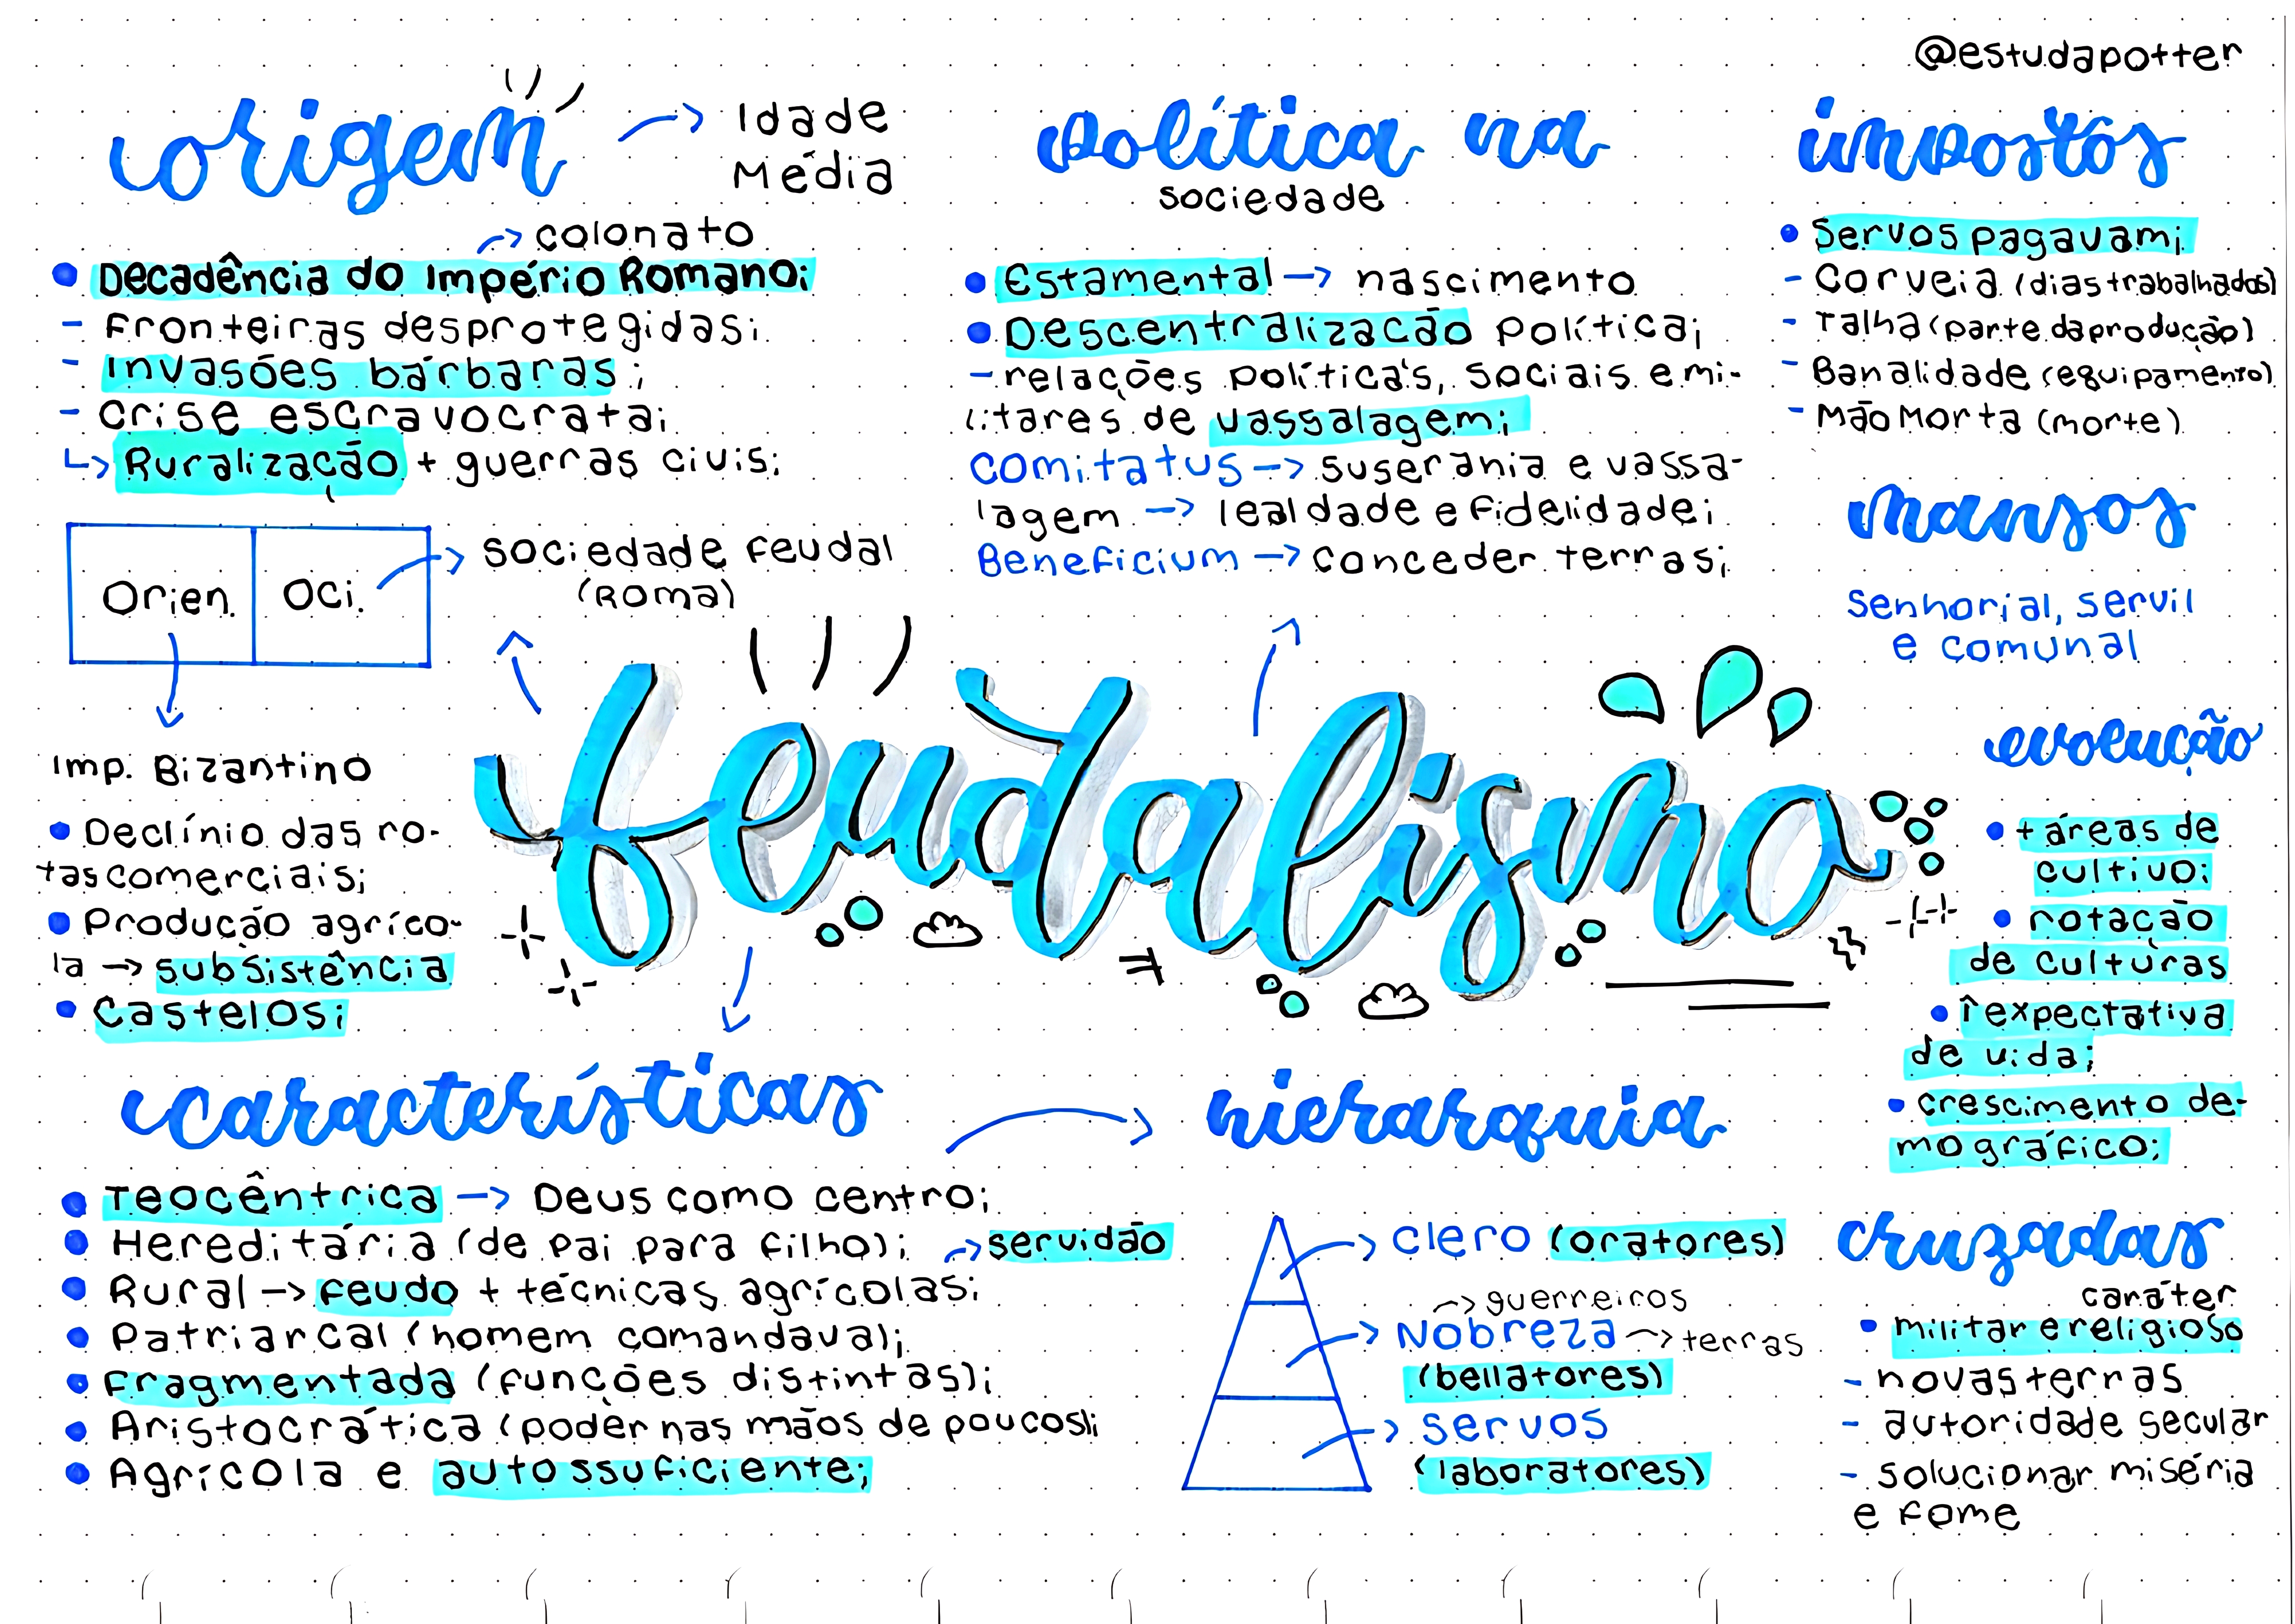 @estudapotter
origem → Idade
Média
→ colonato
• Decadência do Império Romano;
- Fronteiras desprotegidas;
- Invasões bárbaras;
- Crise escravocrata;
↳ Ruralização + guerras civis;
Orien. Oci. → Sociedade feudal
(Roma)
Imp. Bizantino
• Declínio das ro-
tas comerciais;
• Produção agríco-
la → subsistência
• Castelos;
política na
sociedade
• Estamental → nascimento
• Descentralização Política;
- relações políticas, sociais e mi-
litares de vassalagem;
Comitatus → suserania e vassa-
lagem → lealdade e fidelidade;
Beneficium → conceder terras;
impostos
• Servos pagavam;
- Corveia (dias trabalhados)
- Talha (parte da produção)
- Banalidade (equipamento)
- Mão Morta (morte)
mansos
senhorial, servil
e comunal
feudalismo
evolução
• + áreas de
cultivo;
• rotação
de culturas
• ↑expectativa
de vida;
• crescimento de-
mográfico;
características
• Teocêntrica → Deus como centro;
• Hereditária (de pai para filho); → servidão
• Rural → feudo + técnicas agrícolas;
• Patriarcal (homem comandava);
• Fragmentada (funções distintas);
• Aristocrática (poder nas mãos de poucos);
• Agrícola e autossuficiente;
hierarquia
→ clero (oratores)
→ guerreiros
→ Nobreza → terras
(bellatores)
→ servos
(laboratores)
cruzadas
caráter
• militar e religioso
- novas terras
- autoridade secular
- solucionar miséria
e fome